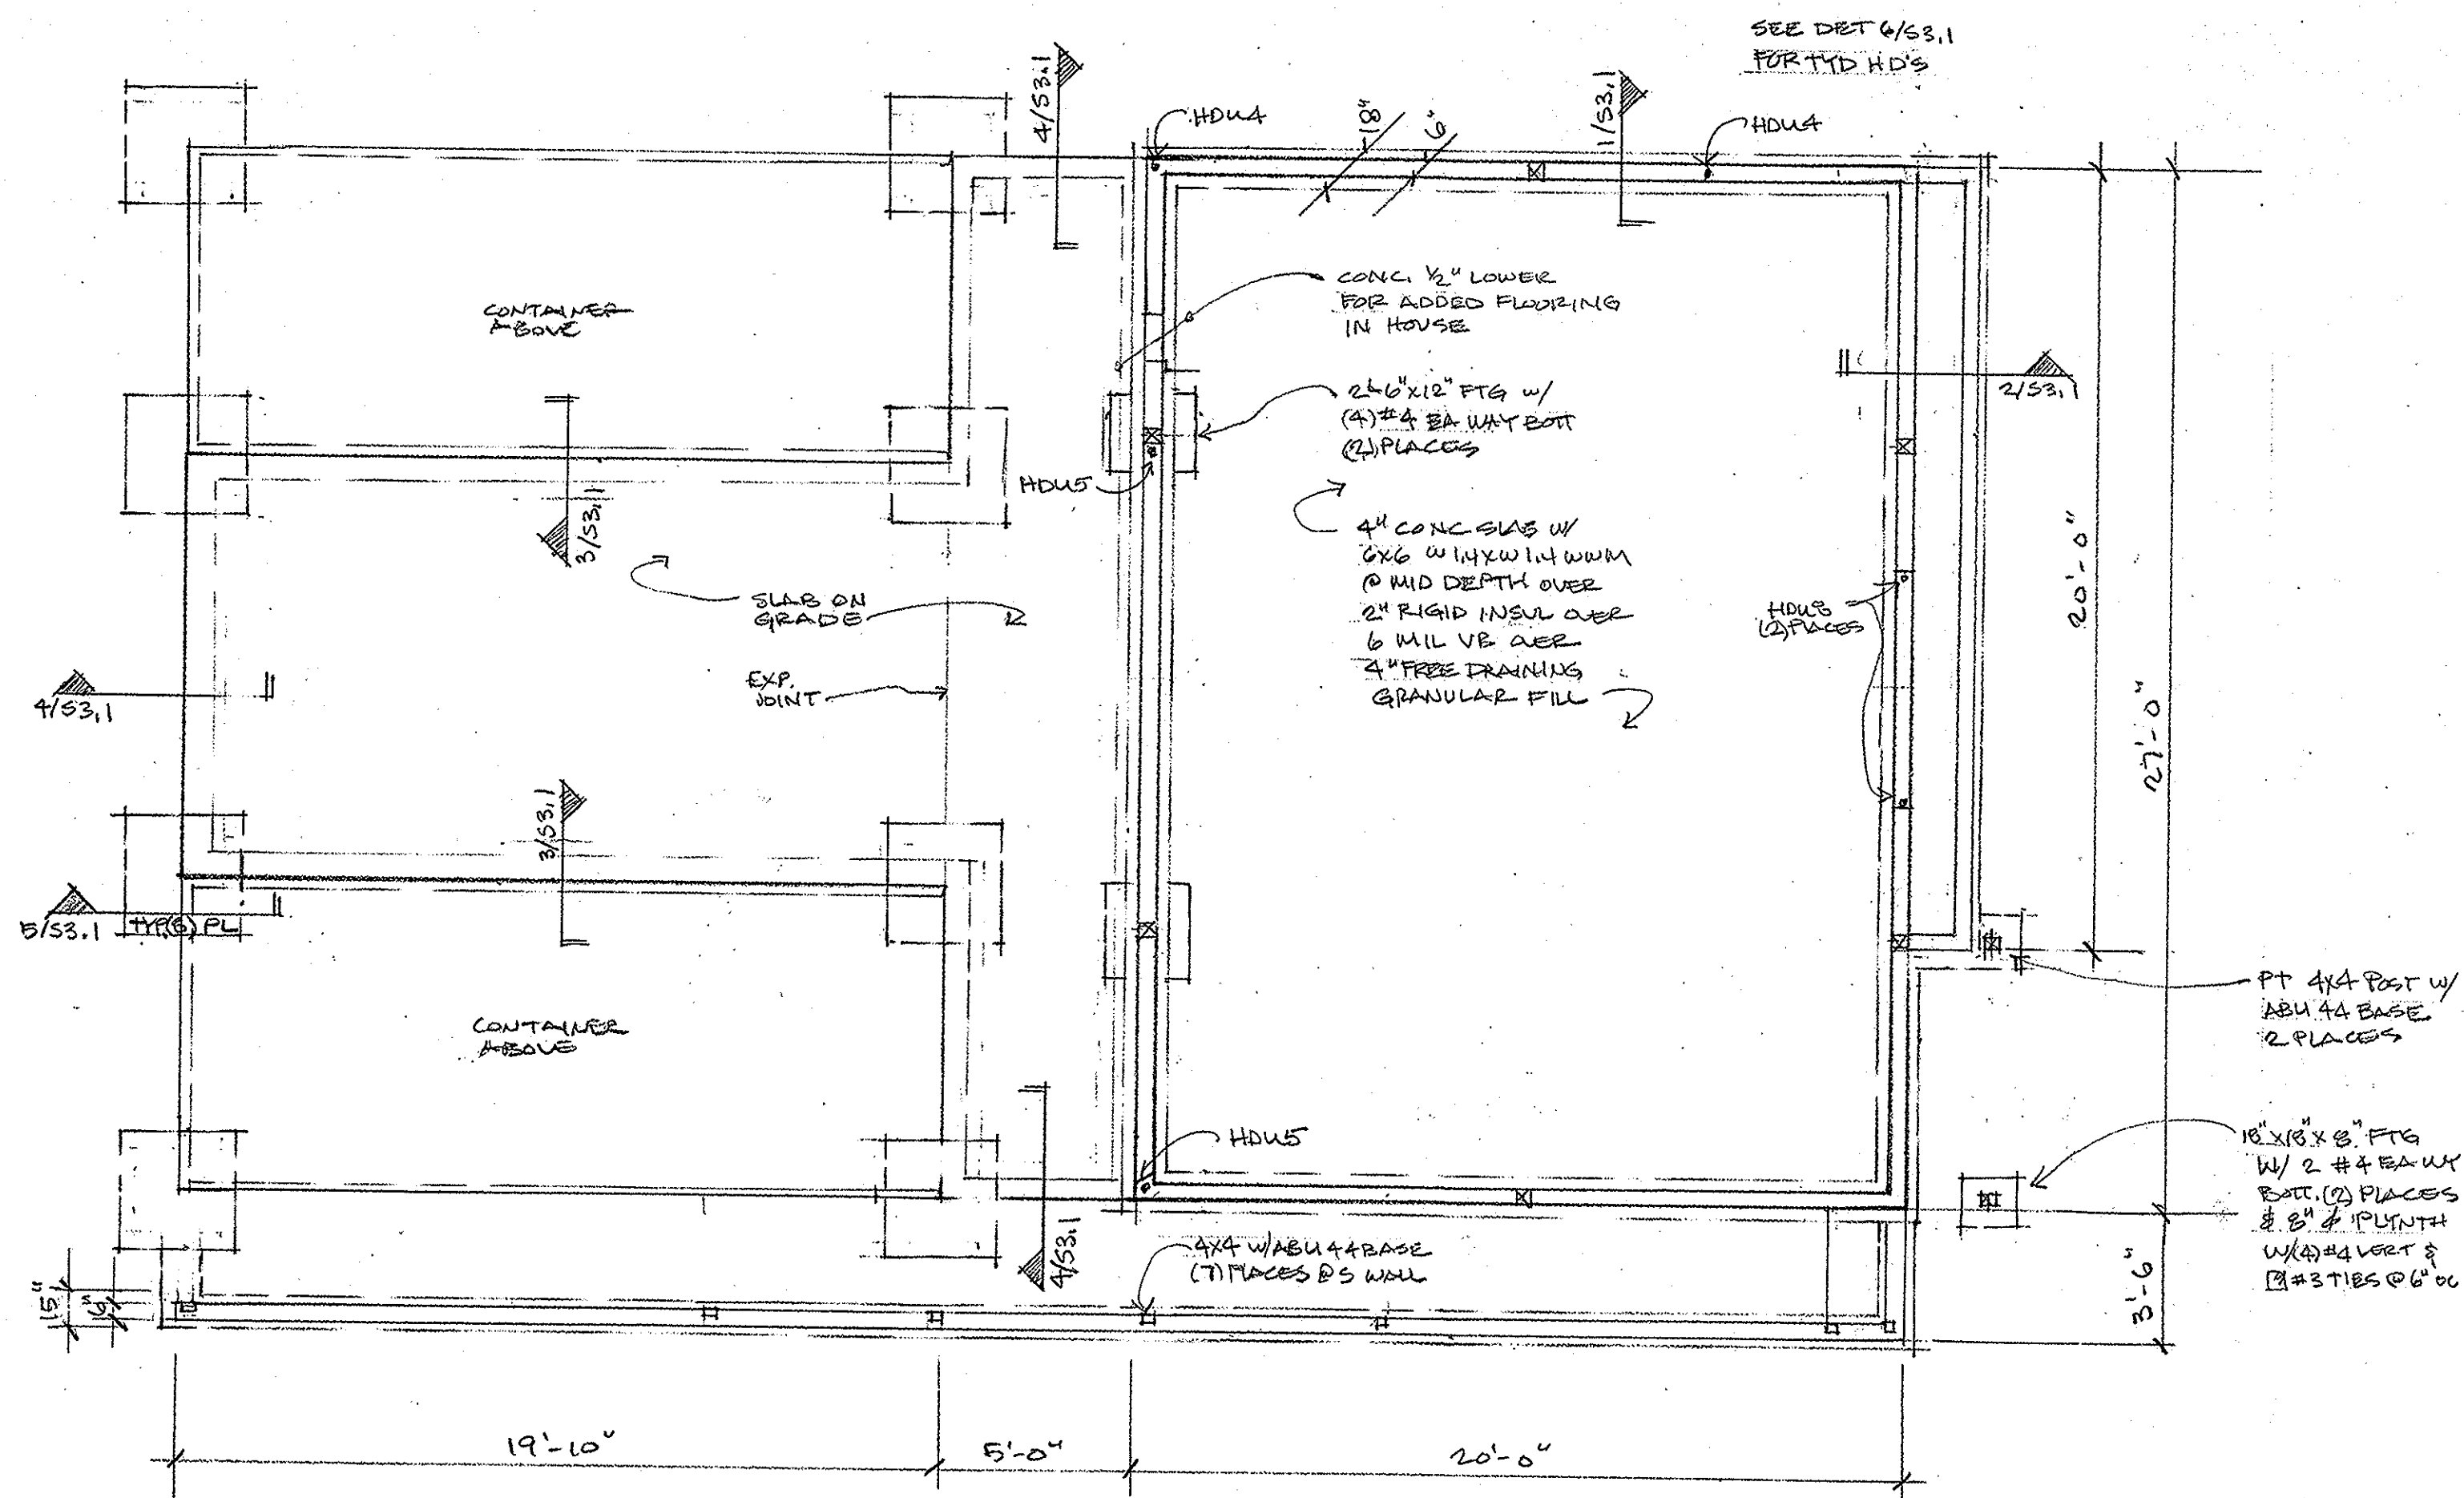 SEE DET 6/S3.1
FOR TYP HD'S
4/S3.1
HDU4
18"
6"
1/S3.1
HDU4
CONTAINER
ABOVE
CONC. 1/2" LOWER
FOR ADDED FLOORING
IN HOUSE
2'-6"X12" FTG W/
(4)#4 EA WAY BOTT
(2) PLACES
2/S3.1
HDU5
3/S3.1
4" CONC SLAB W/
6X6 W1.4XW1.4 WWM
@ MID DEPTH OVER
2" RIGID INSUL OVER
6 MIL VB OVER
4" FREE DRAINING
GRANULAR FILL
SLAB ON
GRADE
HDU8
(2) PLACES
20'-0"
27'-0"
EXP.
JOINT
4/S3.1
3/S3.1
5/S3.1
TYP(8) PL
CONTAINER
ABOVE
PT 4X4 POST W/
ABU 44 BASE
2 PLACES
HDU5
18"X18"X8" FTG
W/ 2 #4 EA WY
BOTT. (2) PLACES
& 8" ϕ PLYNTH
W/(4)#4 VERT &
#3 TIES @ 6" OC
4/S3.1
4X4 W/ABU44BASE
(7) PLACES @ S WALL
15"
6"
3'-6"
19'-10"
5'-0"
20'-0"